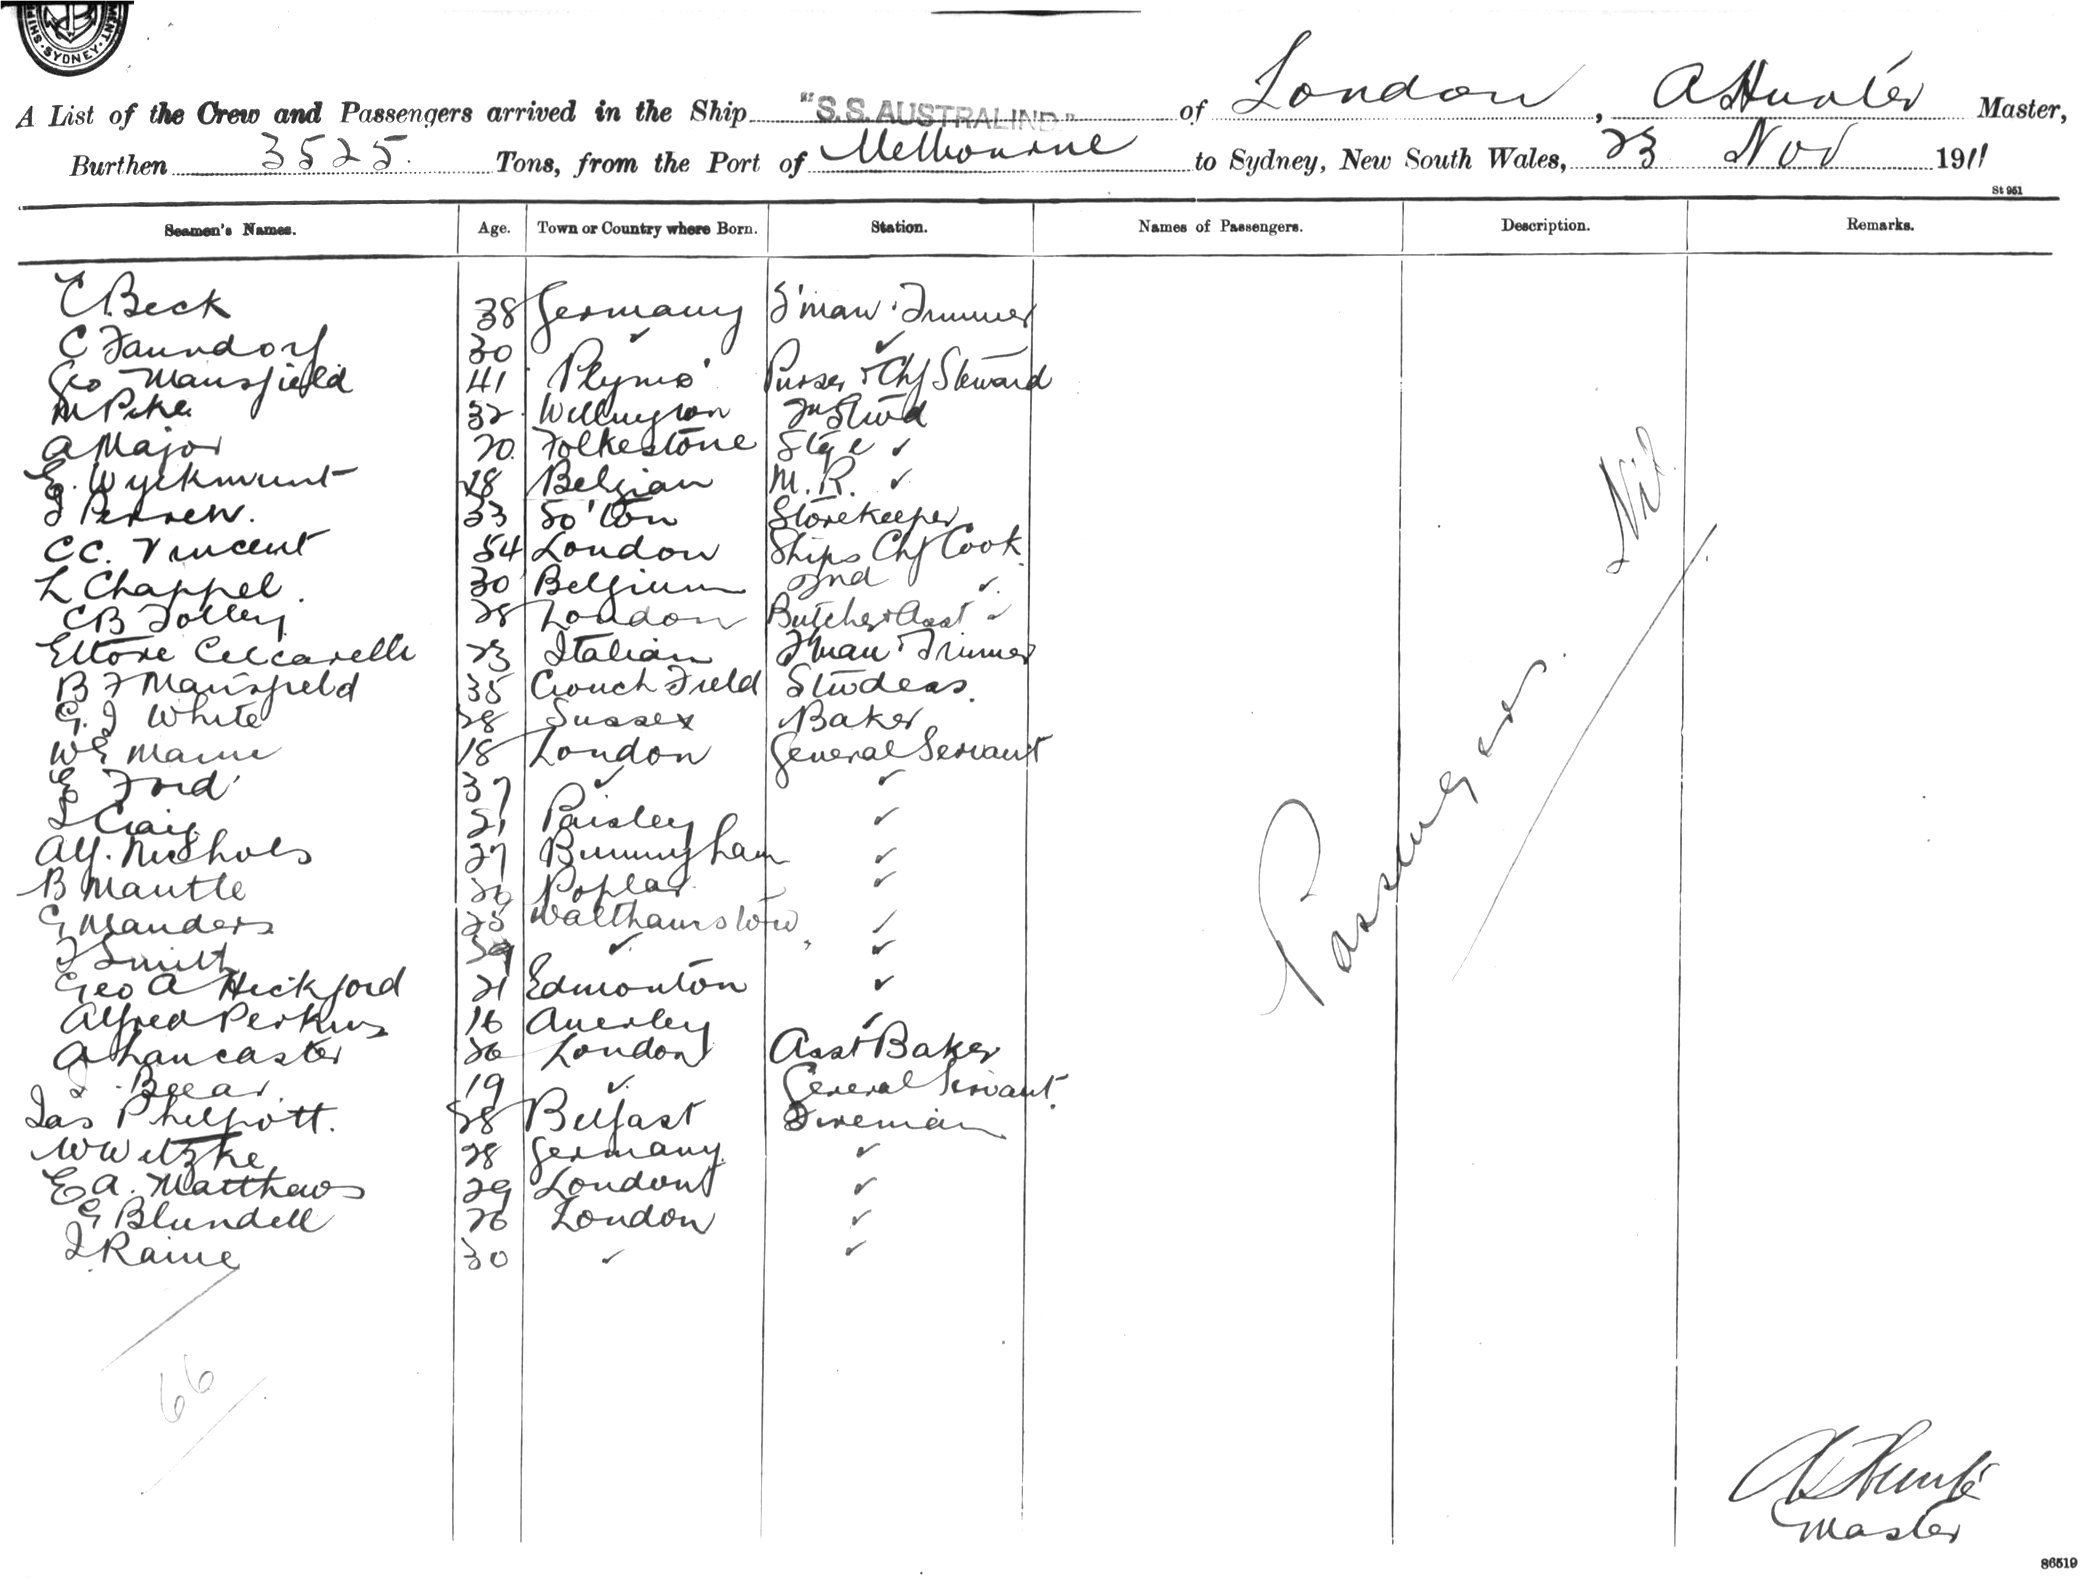 SYDNEY
A List of the Crew and Passengers arrived in the Ship "S.S. AUSTRALIND" of London, A Hunter Master,
Burthen 3525. Tons, from the Port of Melbourne to Sydney, New South Wales, 23 Nov 1911
St 951
Seamen's Names. Age. Town or Country where Born. Station. Names of Passengers. Description. Remarks.
C Beck 38 Germany F'man & Trimmer
C 30 ✓ ✓
Geo Mansfield 41 Plymo' Purser & Chf Steward
M Pike 32 Wellington Stwd
A Major 20 Folkestone Stge ✓
18 Belgian M.R. ✓
33 So'ton Storekeeper
C C. Vincent 54 London Ships Chf Cook
L Chappel. 30 Belgium 2nd ✓
C B Folley 28 London Butcher & Asst ✓
Ettore Ceccarelli 23 Italian F'man & Trimmer
B F Mansfield 35 Crouch Field Stwdess.
G. J White 28 Sussex Baker
W E 18 London General Servant
E Ford 37 ✓ ✓
J Craig 21 Paisley ✓
Alf. Nichols 27 Birmingham ✓
B Mantle Poplar ✓
G Manders 25 Walthamstow ✓
J Smith ✓ ✓
Geo A Hickford 21 Edmonton ✓
Alfred Perkins 16 Anerley ✓
A Lancaster 26 London Asst Baker
19 ✓ General Servant.
Jas Philpott. 28 Belfast Fireman
W Witzke 28 Germany ✓
E A. Matthews 29 London ✓
G Blundell 26 London ✓
J Raine 30 ✓ ✓
Passengers. Nil.
66
A Hunter
Master
86519